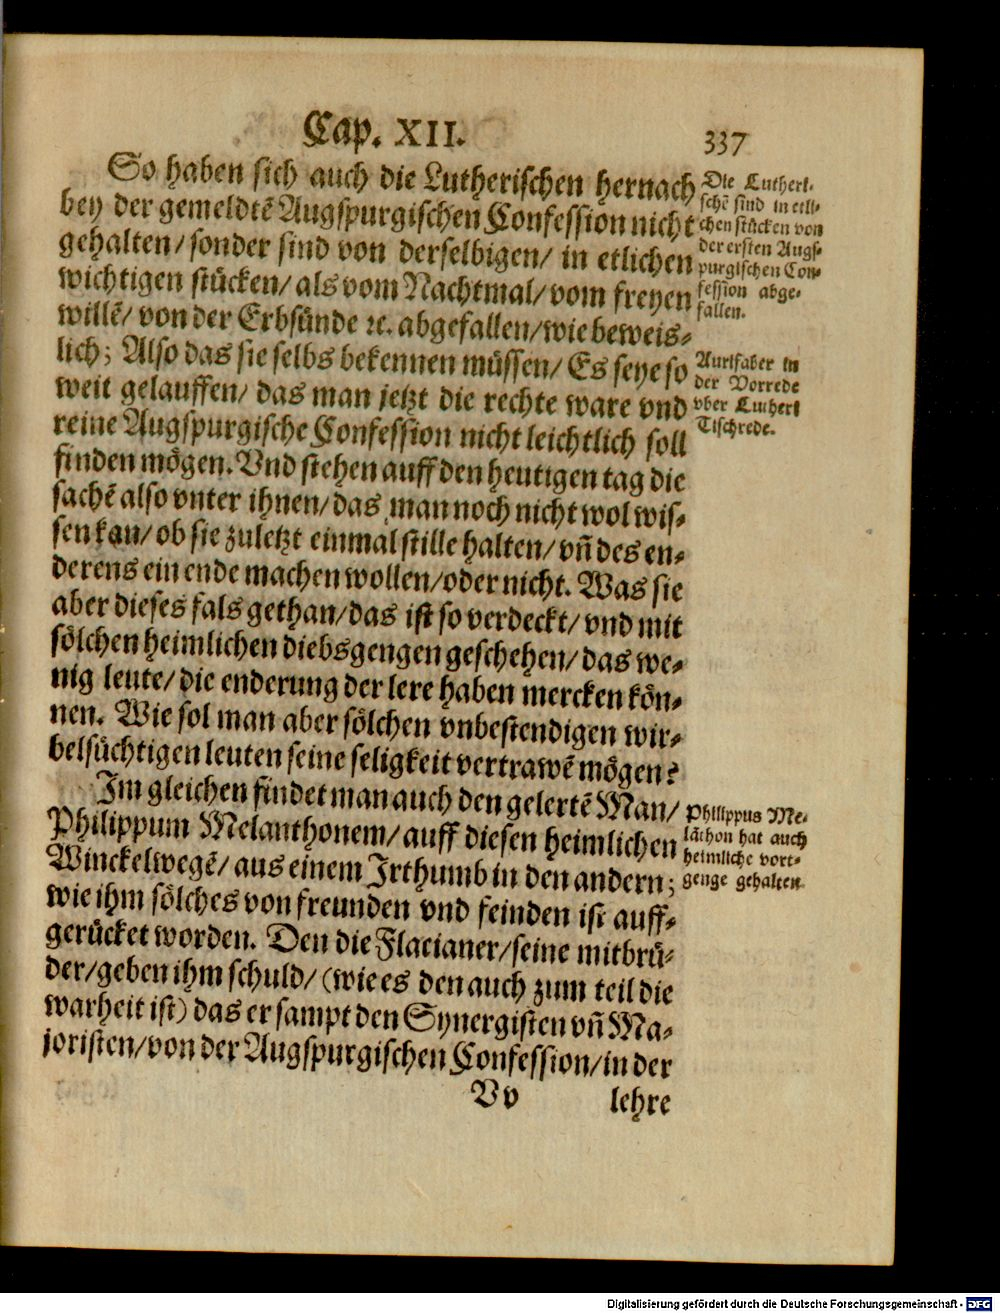 Cap. XII.
337
So haben sich auch die Lutherischen hernach
bey der gemeldtẽ Augspurgischen Confession nicht
gehalten/ sonder sind von derselbigen/ in etlichen
wichtigen stücken/ als vom Nachtmal/ vom freyen
willẽ/ von der Erbsünde ꝛc. abgefallen/ wie beweis-
lich; Also das sie selbs bekennen müssen/ Es seye so
weit gelauffen/ das man jetzt die rechte ware vnd
reine Augspurgische Confession nicht leichtlich soll
finden mögen. Vnd stehen auff den heutigen tag die
sachẽ also vnter ihnen/ das man noch nicht wol wis-
sen kan/ ob sie zuletzt einmal stille halten/ vñ des en-
derens ein ende machen wollen/ oder nicht. Was sie
aber dieses fals gethan/ das ist so verdeckt/ vnd mit
sölchen heimlichen diebsgengen geschehen/ das we-
nig leute/ die enderung der lere haben mercken kön-
nen. Wie sol man aber sölchen vnbestendigen wir-
belsüchtigen leuten seine seligkeit vertrawẽ mögen?
Im gleichen findet man auch den gelertẽ Man/
Philippum Melanthonem/ auff diesen heimlichen
Winckelwegẽ/ aus einem Irthumb in den andern;
wie ihm sölches von freunden vnd feinden ist auff-
gerücket worden. Den die Flacianer/ seine mitbrü-
der/ geben ihm schuld/ (wie es den auch zum teil die
warheit ist) das er sampt den Synergisten vñ Ma-
joristen/ von der Augspurgischen Confession/ in der
Vv
lehre
Die Lutheri-
schẽ sind in etli-
chen stücken von
der ersten Augs-
purgischen Con-
fession abge-
fallen.
Aurifaber in
der Vorrede
vber Lutheri
Tischrede.
Philippus Me-
lãthon hat auch
heimliche vort-
genge gehalten.
Digitalisierung gefördert durch die Deutsche Forschungsgemeinschaft - DFG